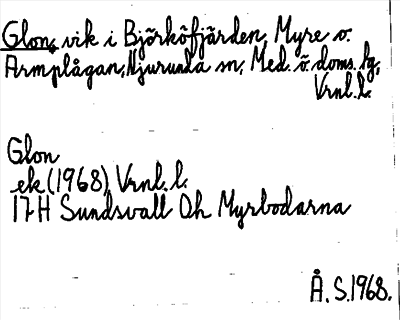 Glon, vik i Björköfjärden, Myre o.
Armplågan, Njurunda sn, Med. ö. doms. hg,
Vrnl. l.
Glon
ek (1968), Vrnl. l.
17H Sundsvall Öh Myrbodarna
Å. S. 1968.